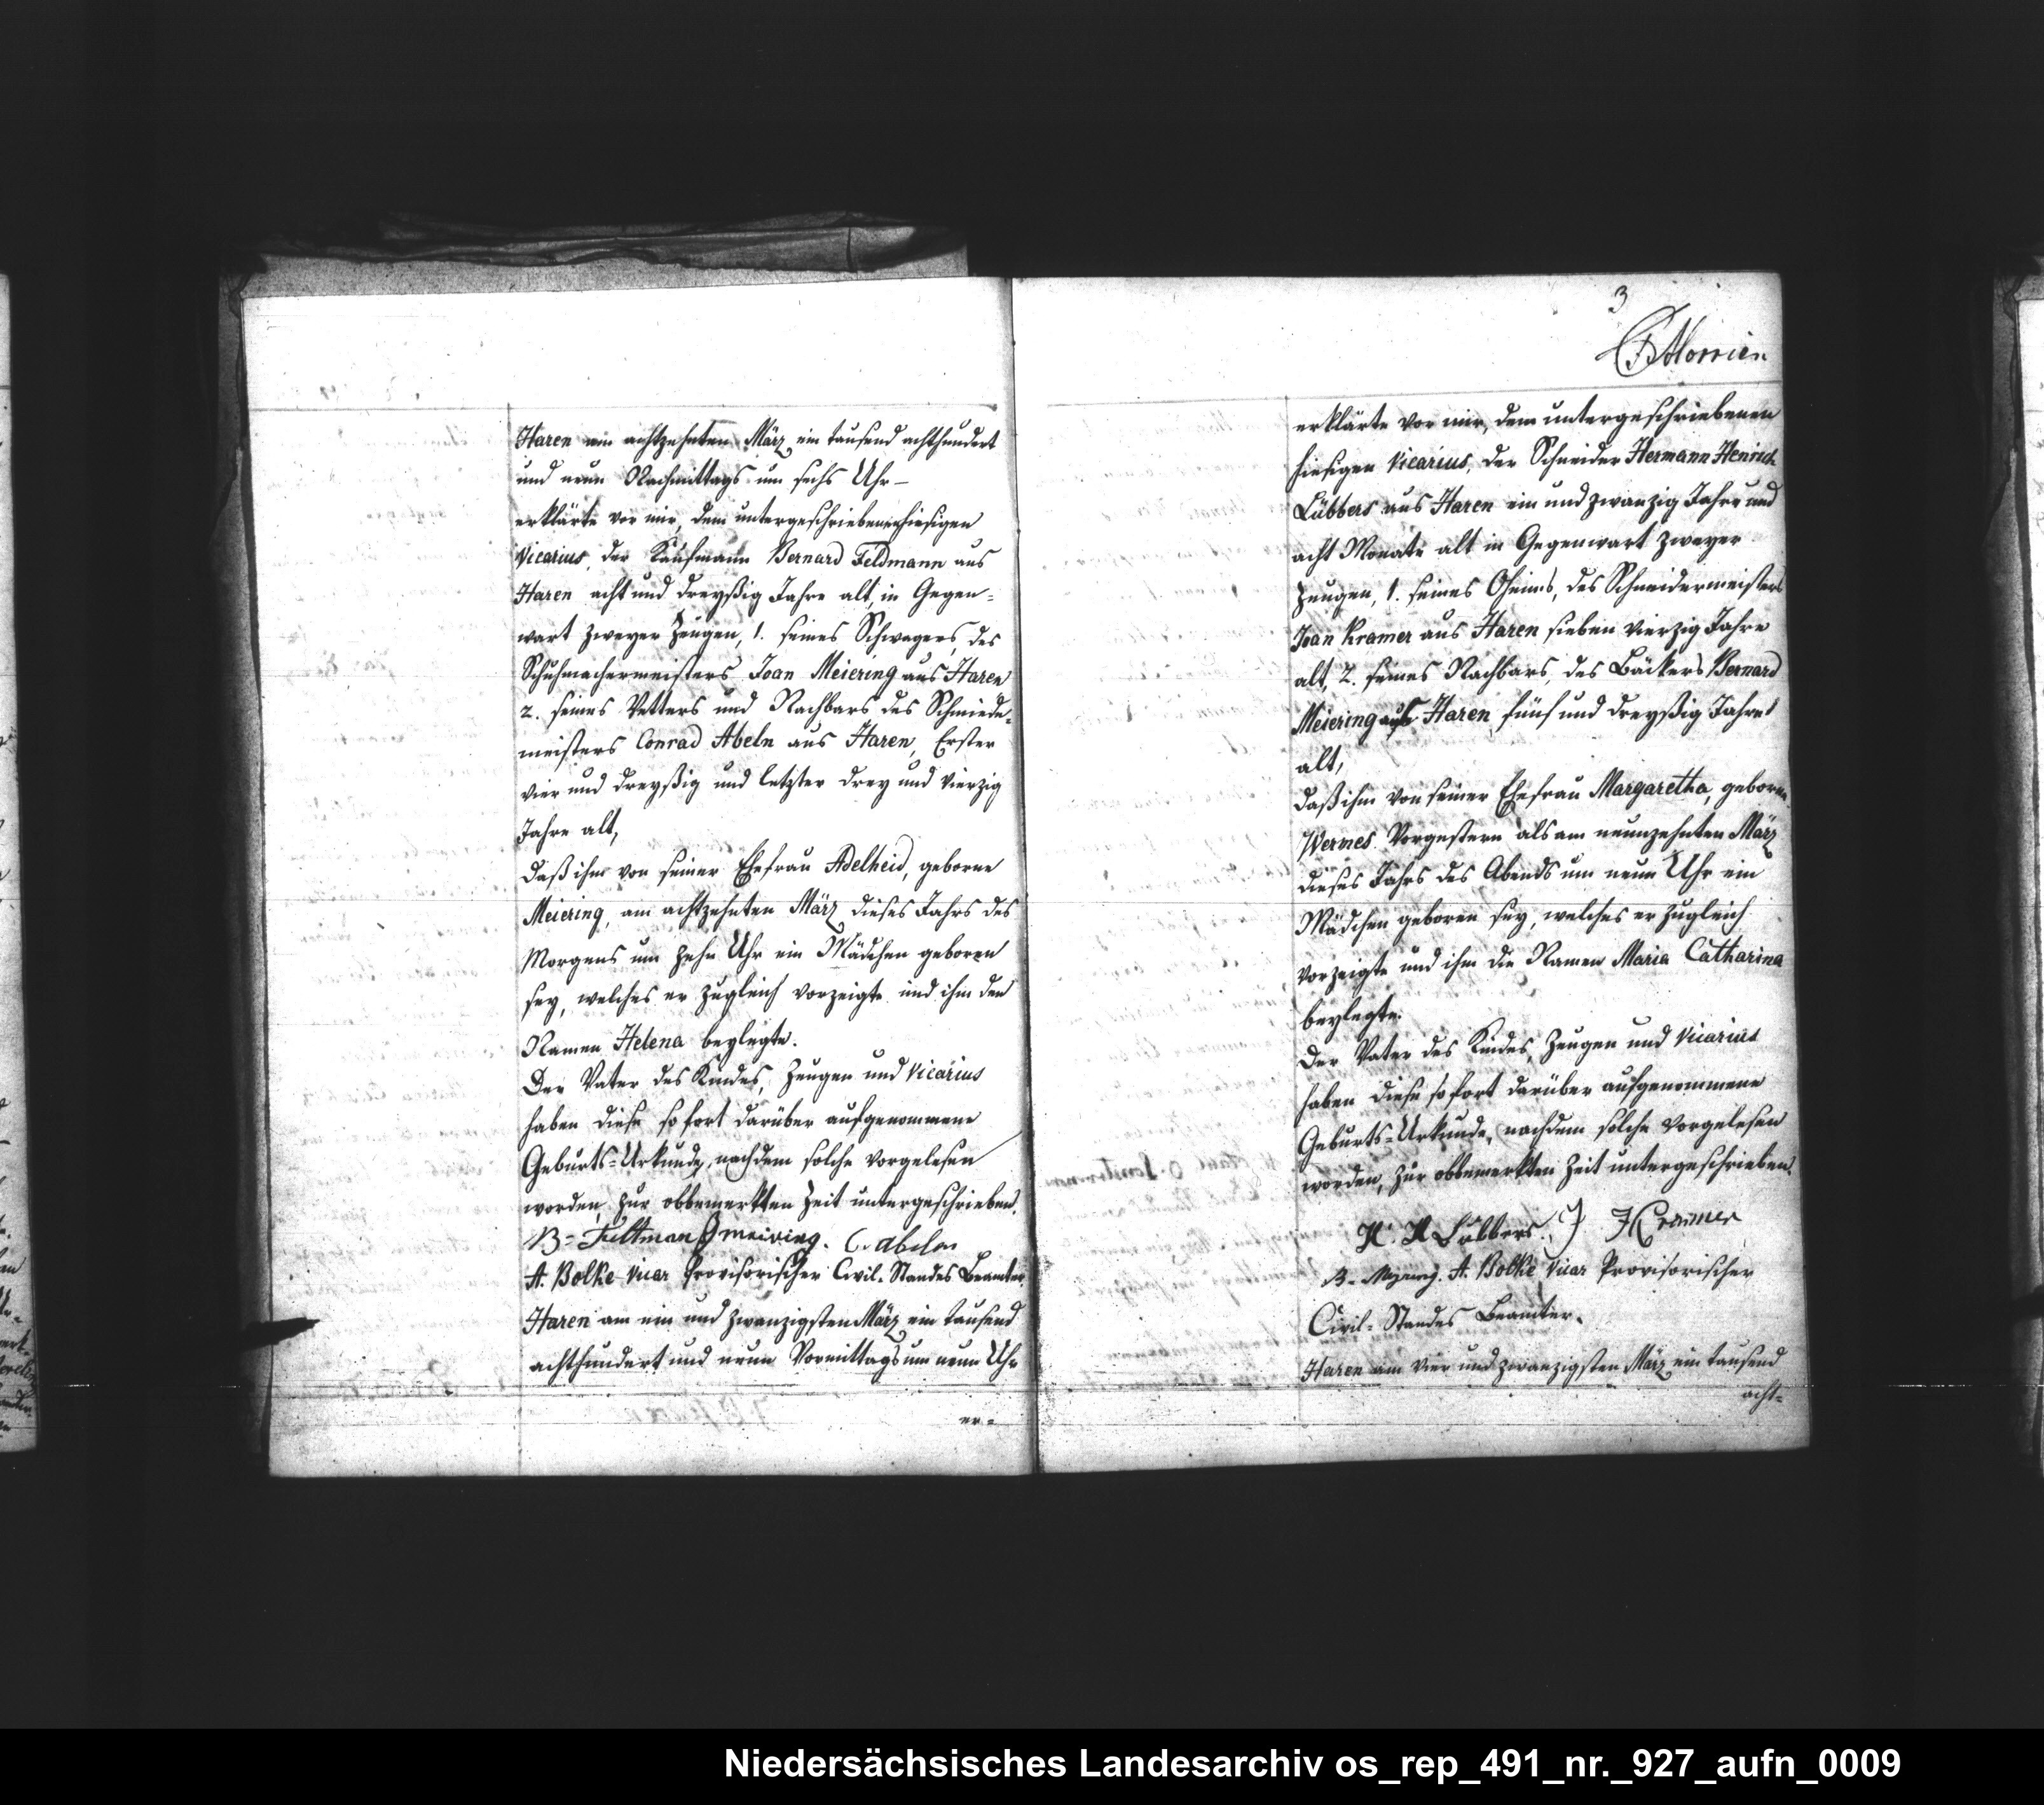 Haren am achtzehnten März ein tausend achthundert
und neun Nachmittags um sechs Uhr –
erklärte vor mir, dem untergeschriebenen hiesigen
Vicarius, der Kaufmann Bernard Feldmann aus
Haren acht und dreyßig Jahre alt, in Gegen=
wart zweyer Zeugen, 1. seines Schwagers, des
Schuhmachermeisters Joan Meiering aus Haren
2. seines Vetters und Nachbars des Schmiede=
meisters Conrad Abeln aus Haren, Erster
vier und dreyßig und letzter drey und vierzig
Jahre alt,
Daß ihm von seiner Ehefrau Adelheid, geborne
Meiering, am achtzehnten März dieses Jahrs des
Morgens um zehn Uhr ein Mädchen geboren
sey, welches er zugleich vorzeigte und ihm den
Namen Helena beylegte.
Der Vater des Kindes, Zeugen und Vicarius
haben diese sofort darüber aufgenommene
Geburts=Urkunde, nachdem solche vorgelesen
worden, zur obbemerkten Zeit untergeschrieben.
B= Feltman J meiring. C. abelen
A. Bolke Vicar Provisorischer Civil=Standes Beamter
Haren am ein und zwanzigsten März ein tausend
achthundert und neun Vormittags um neun Uhr
er=
3
Morrien
erklärte vor mir, dem untergeschriebenen
hiesigen Vicarius, der Schneider Hermann Henrich
Lübbers aus Haren ein und zwanzig Jahre und
acht Monate alt in Gegenwart zweyer
Zeugen, 1. seines Oheims, des Schneidermeisters
Joan Kramer aus Haren sieben vierzig Jahre
alt, 2. seines Nachbars, des Bäckers Bernard
Meiering aus Haren fünf und dreyßig Jahre
alt,
Daß ihm von seiner Ehefrau Margaretha, geborne
Wernes Vorgestern als am neunzehnten März
dieses Jahrs des Abends um neun Uhr ein
Mädchen geboren sey, welches er zugleich
vorzeigte und ihm die Namen Maria Catharina
beylegte.
Der Vater des Kindes, Zeugen und Vicarius
haben diese sofort darüber aufgenommene
Geburts=Urkunde, nachdem solche vorgelesen
worden, zur obbemerkten Zeit untergeschrieben.
H. H Lübbers. J Cramer
B. A. Bolke Vicar Provisorischer
Civil=Standes Beamter.
Haren am vier und zwanzigsten März ein tausend
acht=
Niedersächsisches Landesarchiv os_rep_491_nr._927_aufn_0009